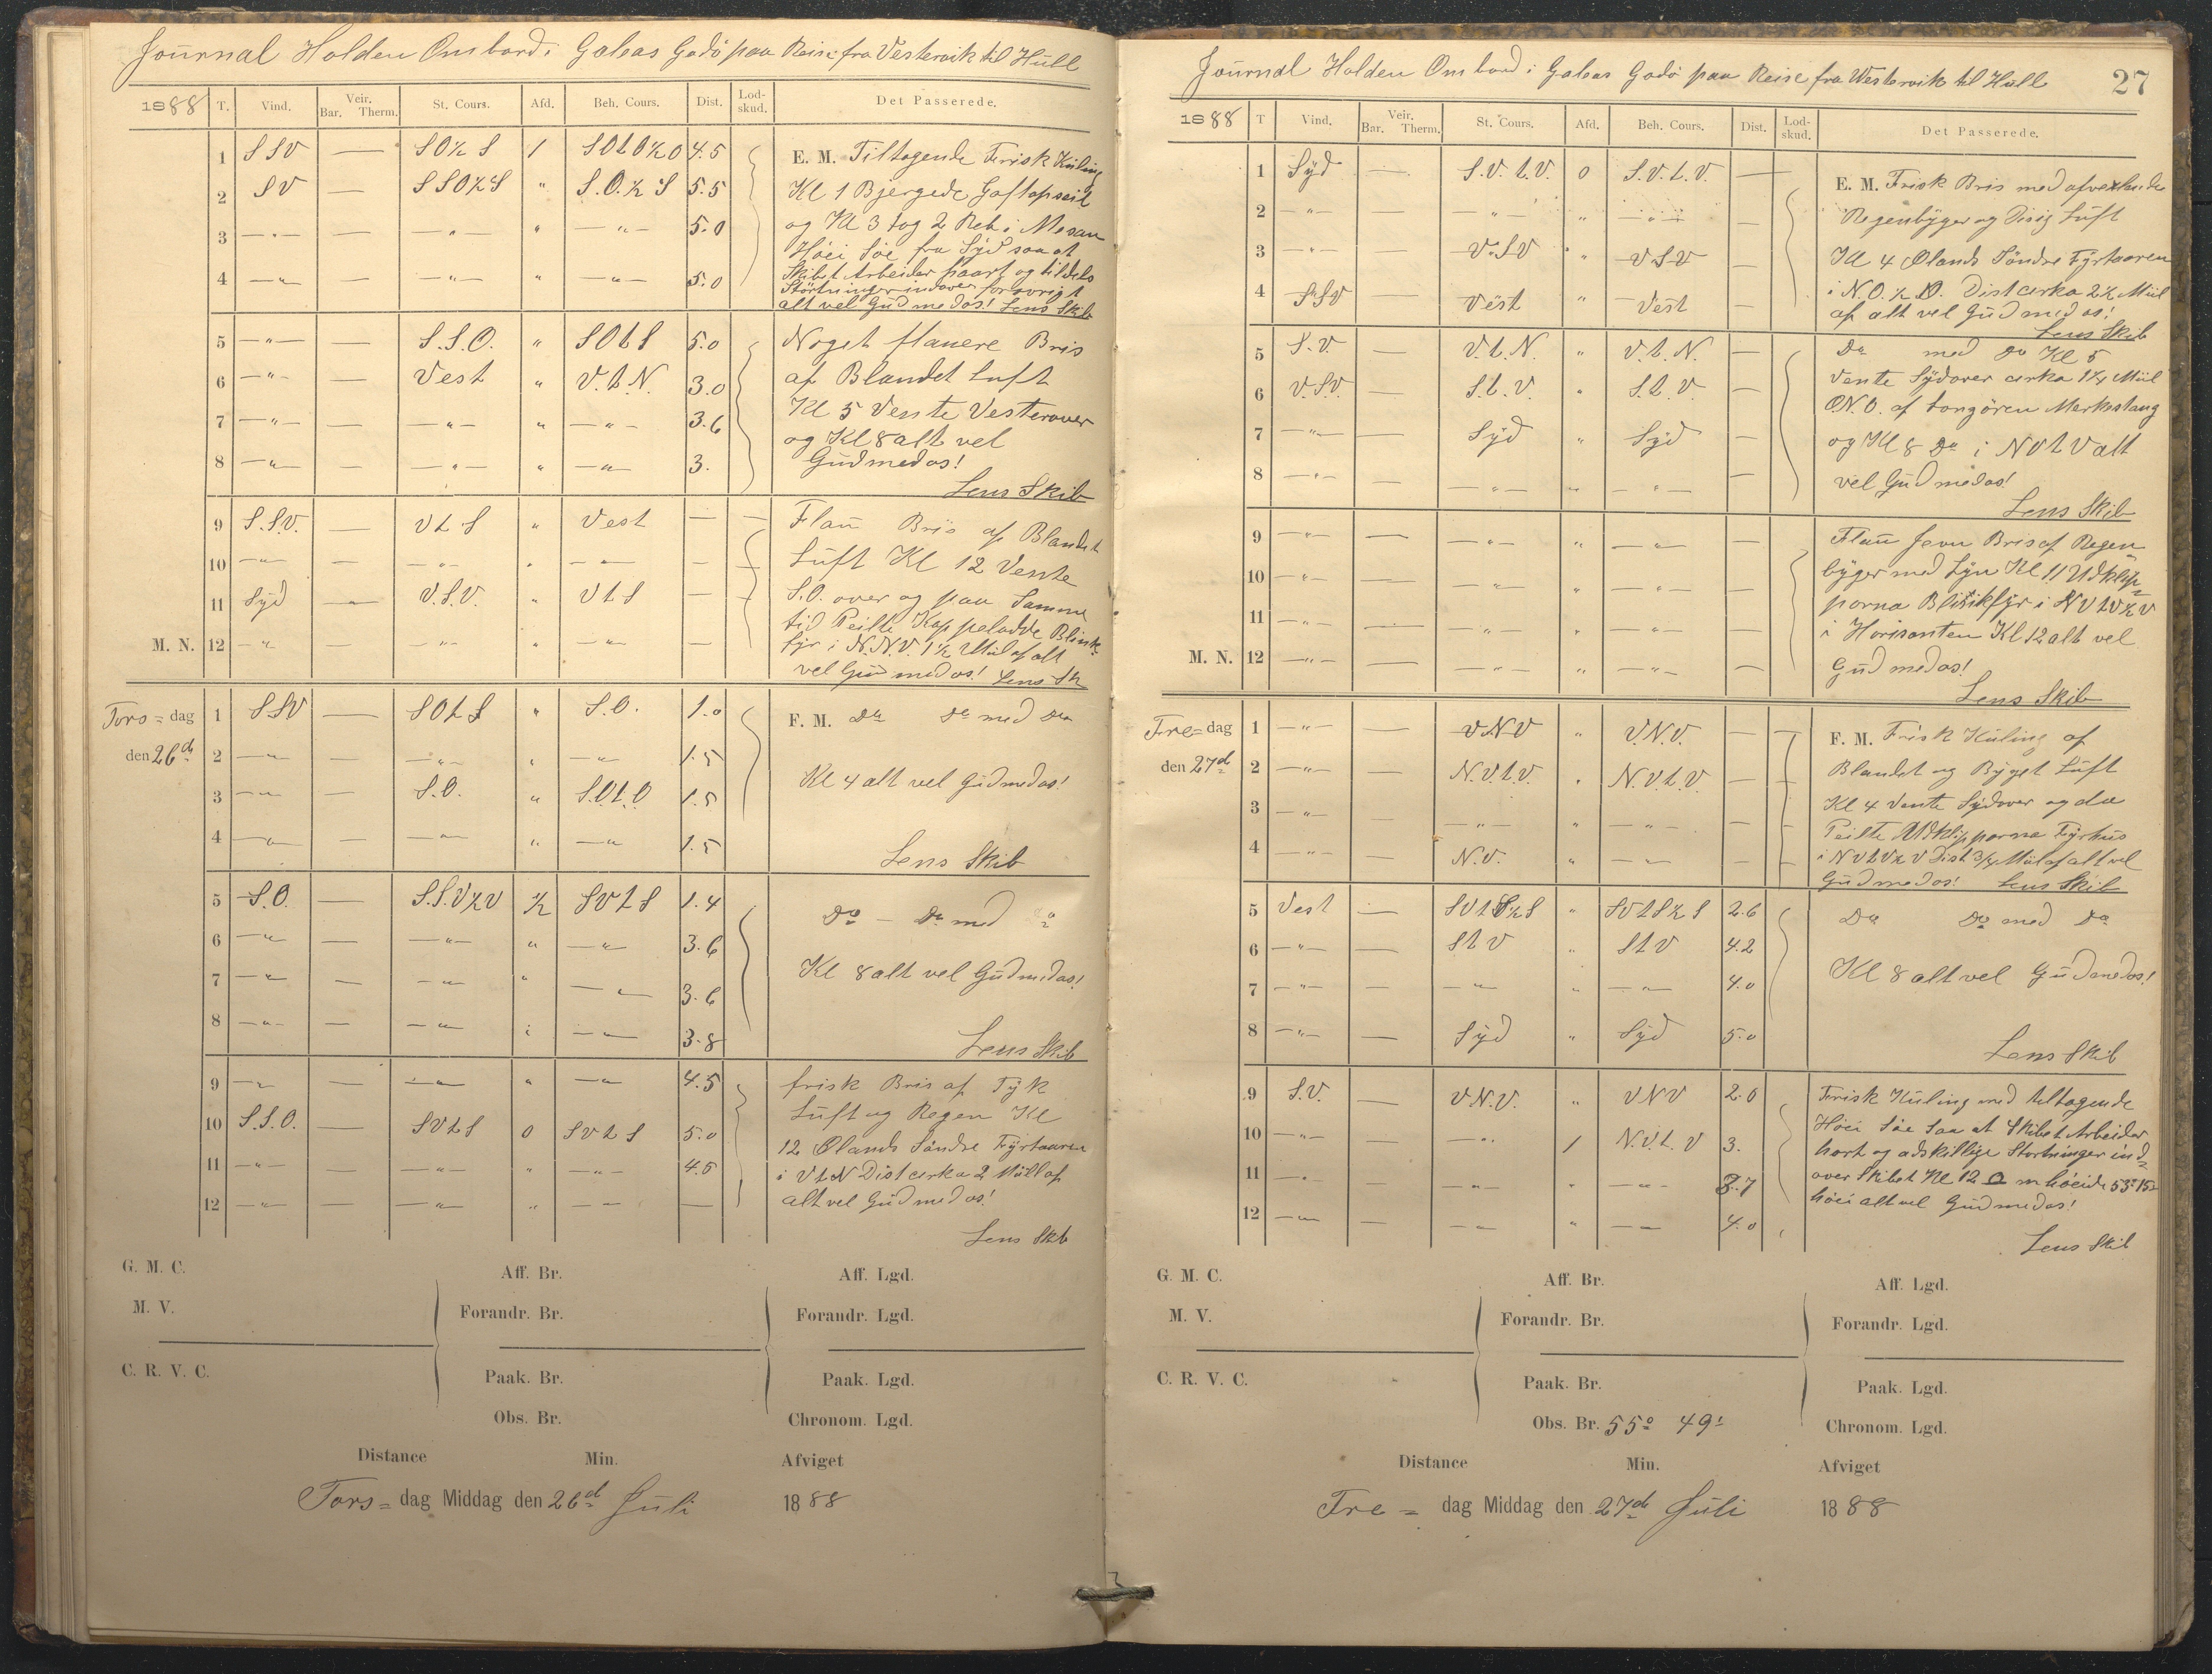 Journal Holden Ombord i Galeas Godö paa Reise fra Vestervik til Hull
1888 T. Vind. Veir. Bar. Therm. St. Cours. Afd. Beh. Cours. Dist. Lod-skud. Det Passerede.
1 SSV — SO½S 1 SOtO½O 4.5
2 SV — SSO½S " S.O.½S 5.5
3 —"— — —"— " —"— 5.0
4 —"— — —"— " —"— 5.0
E. M. Tiltagende Frisk Kuling
Kl 1 Bjergede Gaftopseil
og Kl 3 tog 2 Reb i Mesan
Höei Söe fra Syd saa at
Skibet Arbeider haart og tildels
Störtninger indover forövrigt
alt vel Gud med os! Lens Skib
5 —"— — S.S.O. " SOtS 5.0
6 —"— — Vest " V.t.N. 3.0
7 —"— — —"— " —"— 3.6
8 —"— — —"— " —"— 3.
Noget flauere Bris
af Blandet Luft
Kl 5 Vente Vesterover
og Kl 8 alt vel
Gud med os!
Lens Skib
9 S.SV. — VtS " Vest — —
10 —"— — —"— " —"— — —
11 Syd — V.S.V. " VtS — —
M. N. 12 —"— — —"— " —"— —
Flau Bris af Blandet
Luft Kl 12 Vente
S.O. over og paa Samme
tid Peilte Kappeludde Blink-
fyr i N.N.V. 1½ Miil af alt
vel Gud med os! Lens Sk
Tors= dag
den 26d
1 SSV — SOtS " S.O. 1.0
2 —"— — —"— " —"— 1.5
3 —"— — S.O. " S.Ot.O 1.5
4 —"— — —"— " —"— 1.5
F. M. Do Do med Do
Kl 4 alt vel Gud med os!
Lens Skib
5 S.O. — S.S.V½V ½ SVtS 1.4
6 —"— — —"— " —"— 3.6
7 —"— — —"— " —"— 3.6
8 —"— — —"— " —"— 3.8
Do — Do med Do
Kl 8 alt vel Gud med os!
Lens Skib
9 —"— — —"— " —"— 4.5
10 S.S.O. — SVtS 0 SVtS 5.0
11 —"— — —"— " —"— 4.5
12 —"— — —"— " —"— —
frisk Bris af Tyk
Luft og Regen Kl
12 Ølands Söndre Fyrtaaren
i VtN Dist cirka 2 Miill af
alt vel Gud med os!
Lens Skib
G. M. C. Aff. Br. Aff. Lgd.
M. V. Forandr. Br. Forandr. Lgd.
C. R. V. C. Paak. Br. Paak. Lgd.
Obs. Br. Chronom. Lgd.
Distance Min. Afviget
Tors= dag Middag den 26d Juli 1888
Journal Holden Ombord i Galeas Godö paa Reise fra Westervik til Hull 27
1888 T Vind. Veir. Bar. Therm. St. Cours. Afd. Beh. Cours. Dist. Lod-skud. Det Passerede.
1 Syd — S.V.t.V. 0 S.V.t.V. —
2 —"— — —"— " —"— —
3 —"— — V.SV " VSV —
4 S.SV — Vest " Vest —
E. M. Frisk Bris med afvexlende
Regenbyger og Disig Luft
Kl 4 Ølands Söndre Fyrtaaren
i N.O.½O. Dist cirka 2½ Miil
af alt vel Gud med os!
Lens Skib
5 S.V. — V.t.N. " V.t.N. —
6 V.SV. — S.t.V. " S.t.V. —
7 —"— — Syd " Syd —
8 —"— — —"— " —"— —
Do med Do Kl 5
Vente Sydover cirka 1¼ Miil
O.N.O. af Langören Merkestang
og Kl 8 Do i NVtV alt
vel Gud med os!
Lens Skib
9 —"— — —"— " —"— —
10 —"— — —"— " —"—
11 —"— — —"— " —"— —
M. N. 12 —"— — —"— " —"— —
Flau Jevn Bris af Regen
byger med Lyn Kl 11 Udklip=
porna Blinkfyr i NVtV½V
i Horisonten Kl 12 alt vel
Gud med os!
Lens Skib
Fre= dag
den 27de
1 —"— VNV " V.N.V. — —
2 —"— — N.V.t.V. " N.V.t.V. — —
3 —"— — —"— " —"— — —
4 —"— — N.V. " —"— — —
F. M. Frisk Kuling af
Blandet og Byget Luft
Kl 4 Vente Sydover og da
Peilte Udklipporna Fyrhus
i NVtV½V Dist ¾ Miil af alt vel
Gud med os! Lens Skib
5 Vest — SVtS½S " SVtS½S 2.6
6 —"— — StV " StV 4.2
7 —"— — —"— " —"— 4.0
8 —"— — Syd " Syd 5.0
Do Do med Do
Kl 8 alt vel Gud med os!
Lens Skib
9 S.V. — V.N.V. " VNV 2.0
10 —"— — —"— 1 N.V.t.V 3.
11 —"— — —"— " —"— 3.7
12 —"— — —"— " —"— 4.0
Frisk Kuling med tiltagende
Höei Söe Saa at Skibet Arbeider
hart og adskillige Stortninger ind=
over Skibet Kl 12 ☉ m höeide 53° 15
höei alt vel Gud med os!
Lens Skib
G. M. C. Aff. Br. Aff. Lgd.
M. V. Forandr. Br. Forandr. Lgd.
C. R. V. C. Paak. Br. Paak. Lgd.
Obs. Br. 55° 49' Chronom. Lgd.
Distance Min. Afviget
Fre= dag Middag den 27de Juli 1888